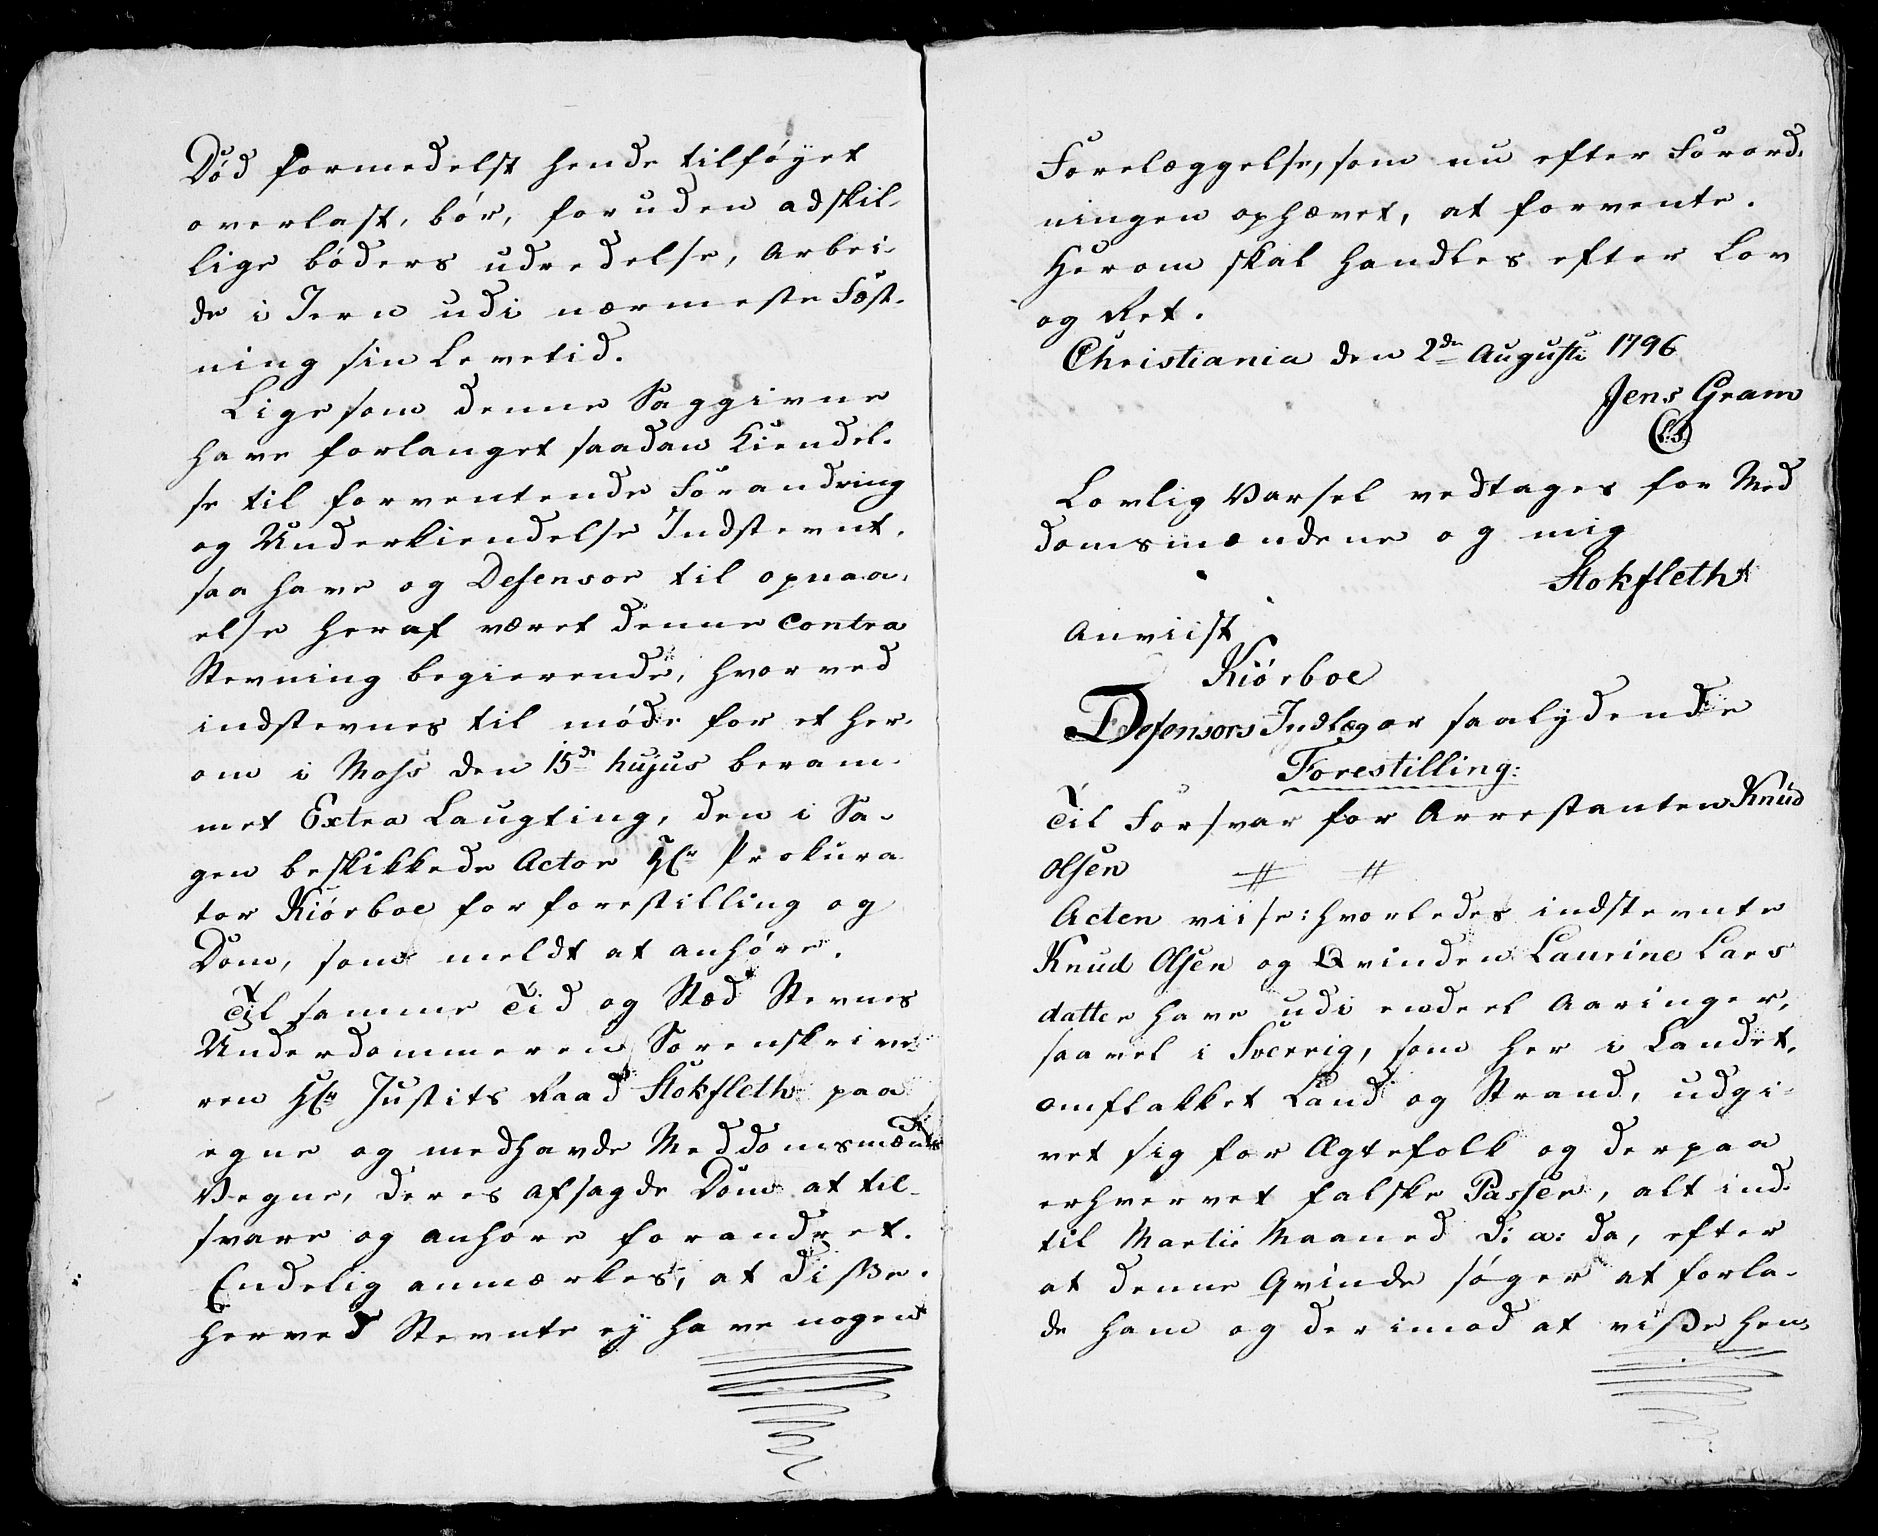 Død formedelst hende tilføyet
overlast, bør, foruden adskil-
lige bøders udredelse, Arbei-
de i Jern udi nærmeste Fæst-
ning sin Levetid.
Ligesom denne Saggivne
have forlanget saadan Kiendel-
se til forventende Forandring
og Underkiendelse Indstevnt,
saa have og Defensor til opnaa-
else heraf været denne Contra
Stevning begierende, hvorved
indstevnes til møde for et her-
om i Moss den 15de hujus beram-
met Extra Laugting, den i Sa-
gen beskikkede Actor Hr Prokura-
tor Kiörboe for forestilling og
Dom, som meldt at anhøre.
Til samme Tid og Stæd Stevnes
Underdommeren Sorenskrive-
ren Hr Justits Raad Stokfleth paa
egne og medhavde Meddomsmænds
Vegne, deres afsagde Dom at til-
svare og anhøre forandret.
Endelig anmærkes, at disse-
herved Stevnte ej have nogen
Forelæggelse, som nu efter Forord-
ningen ophævet, at forvente.
Herom skal handles efter Lov
og Ret.
Christiania den 2de Augusti 1796
Jens Gram
(L.S.)
Lovlig Varsel vedtages for Med
domsmændene og mig
Stokfleth
Anviist
Kiörboe
Defensors Indlæg er saalydende
Forestilling:
Til Forsvar for Arrestanten Knud
Olsen
Acten viise: hvorledes indstevnte
Knud Olsen og Qvinden Laurine Lars
datter have udi endeel Aaringer,
saavel i Sverrig, som her i Landet,
omflakket Land og Strand, udgi-
vet sig for Ægtefolk og derpaa
erhvervet falske Passer, alt ind-
til Martii Maaned d: a: da, efter
at denne Qvinde søger at forla-
de ham og derimod at visse hen-